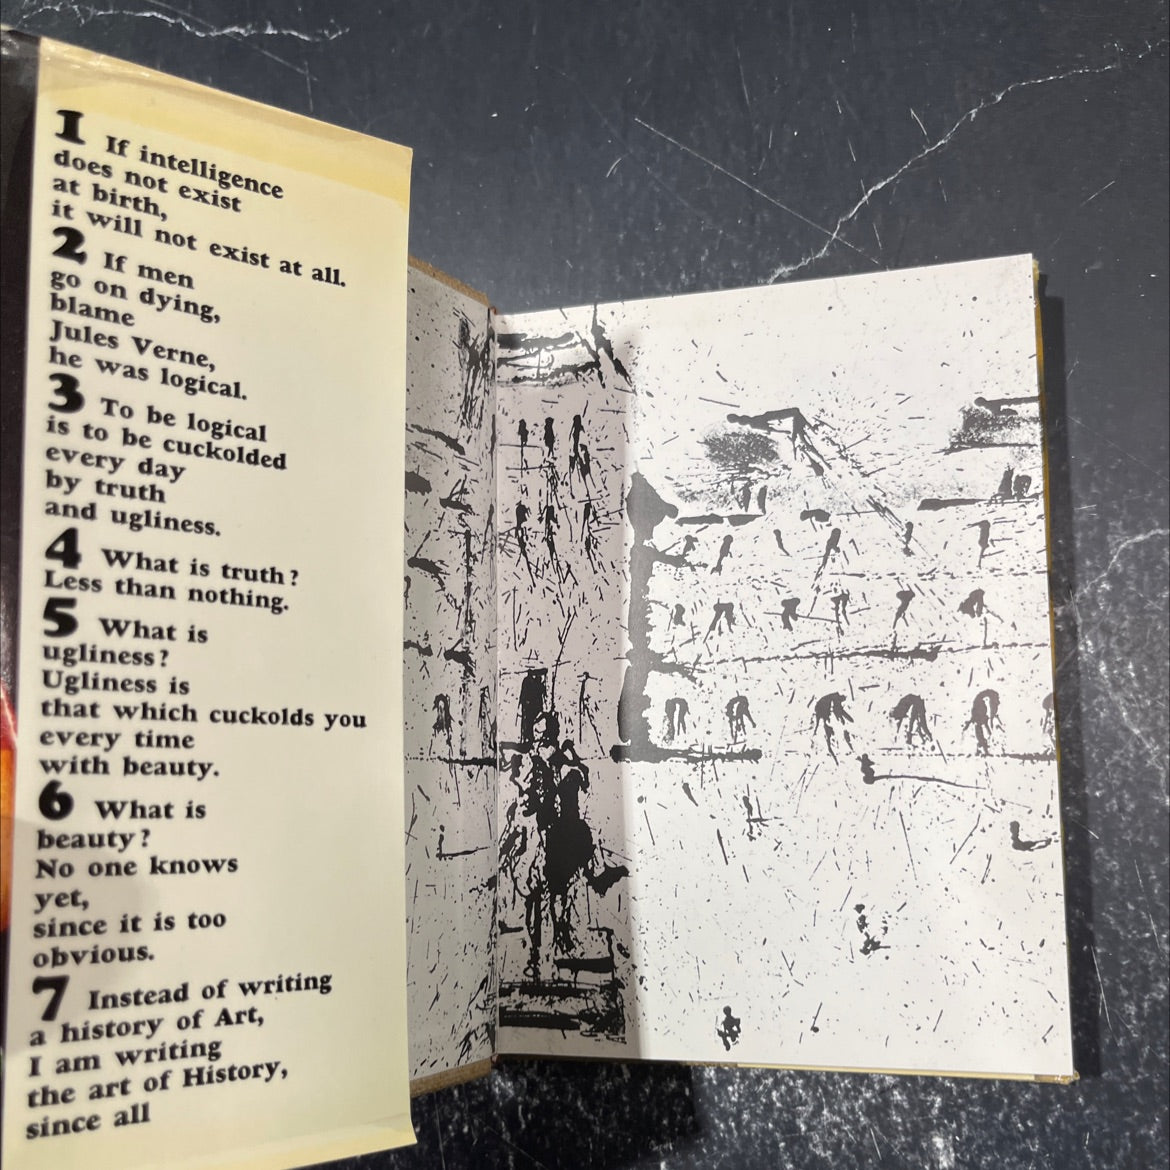 1 If intelligence
does not exist
at birth,
it will not exist at all.
2 If men
go on dying,
blame
Jules Verne,
he was logical.
3 To be logical
is to be cuckolded
every day
by truth
and ugliness.
4 What is truth?
Less than nothing.
5 What is
ugliness?
Ugliness is
that which cuckolds you
every time
with beauty.
6 What is
beauty?
No one knows
yet,
since it is too
obvious.
7 Instead of writing
a history of Art,
I am writing
the art of History,
since all